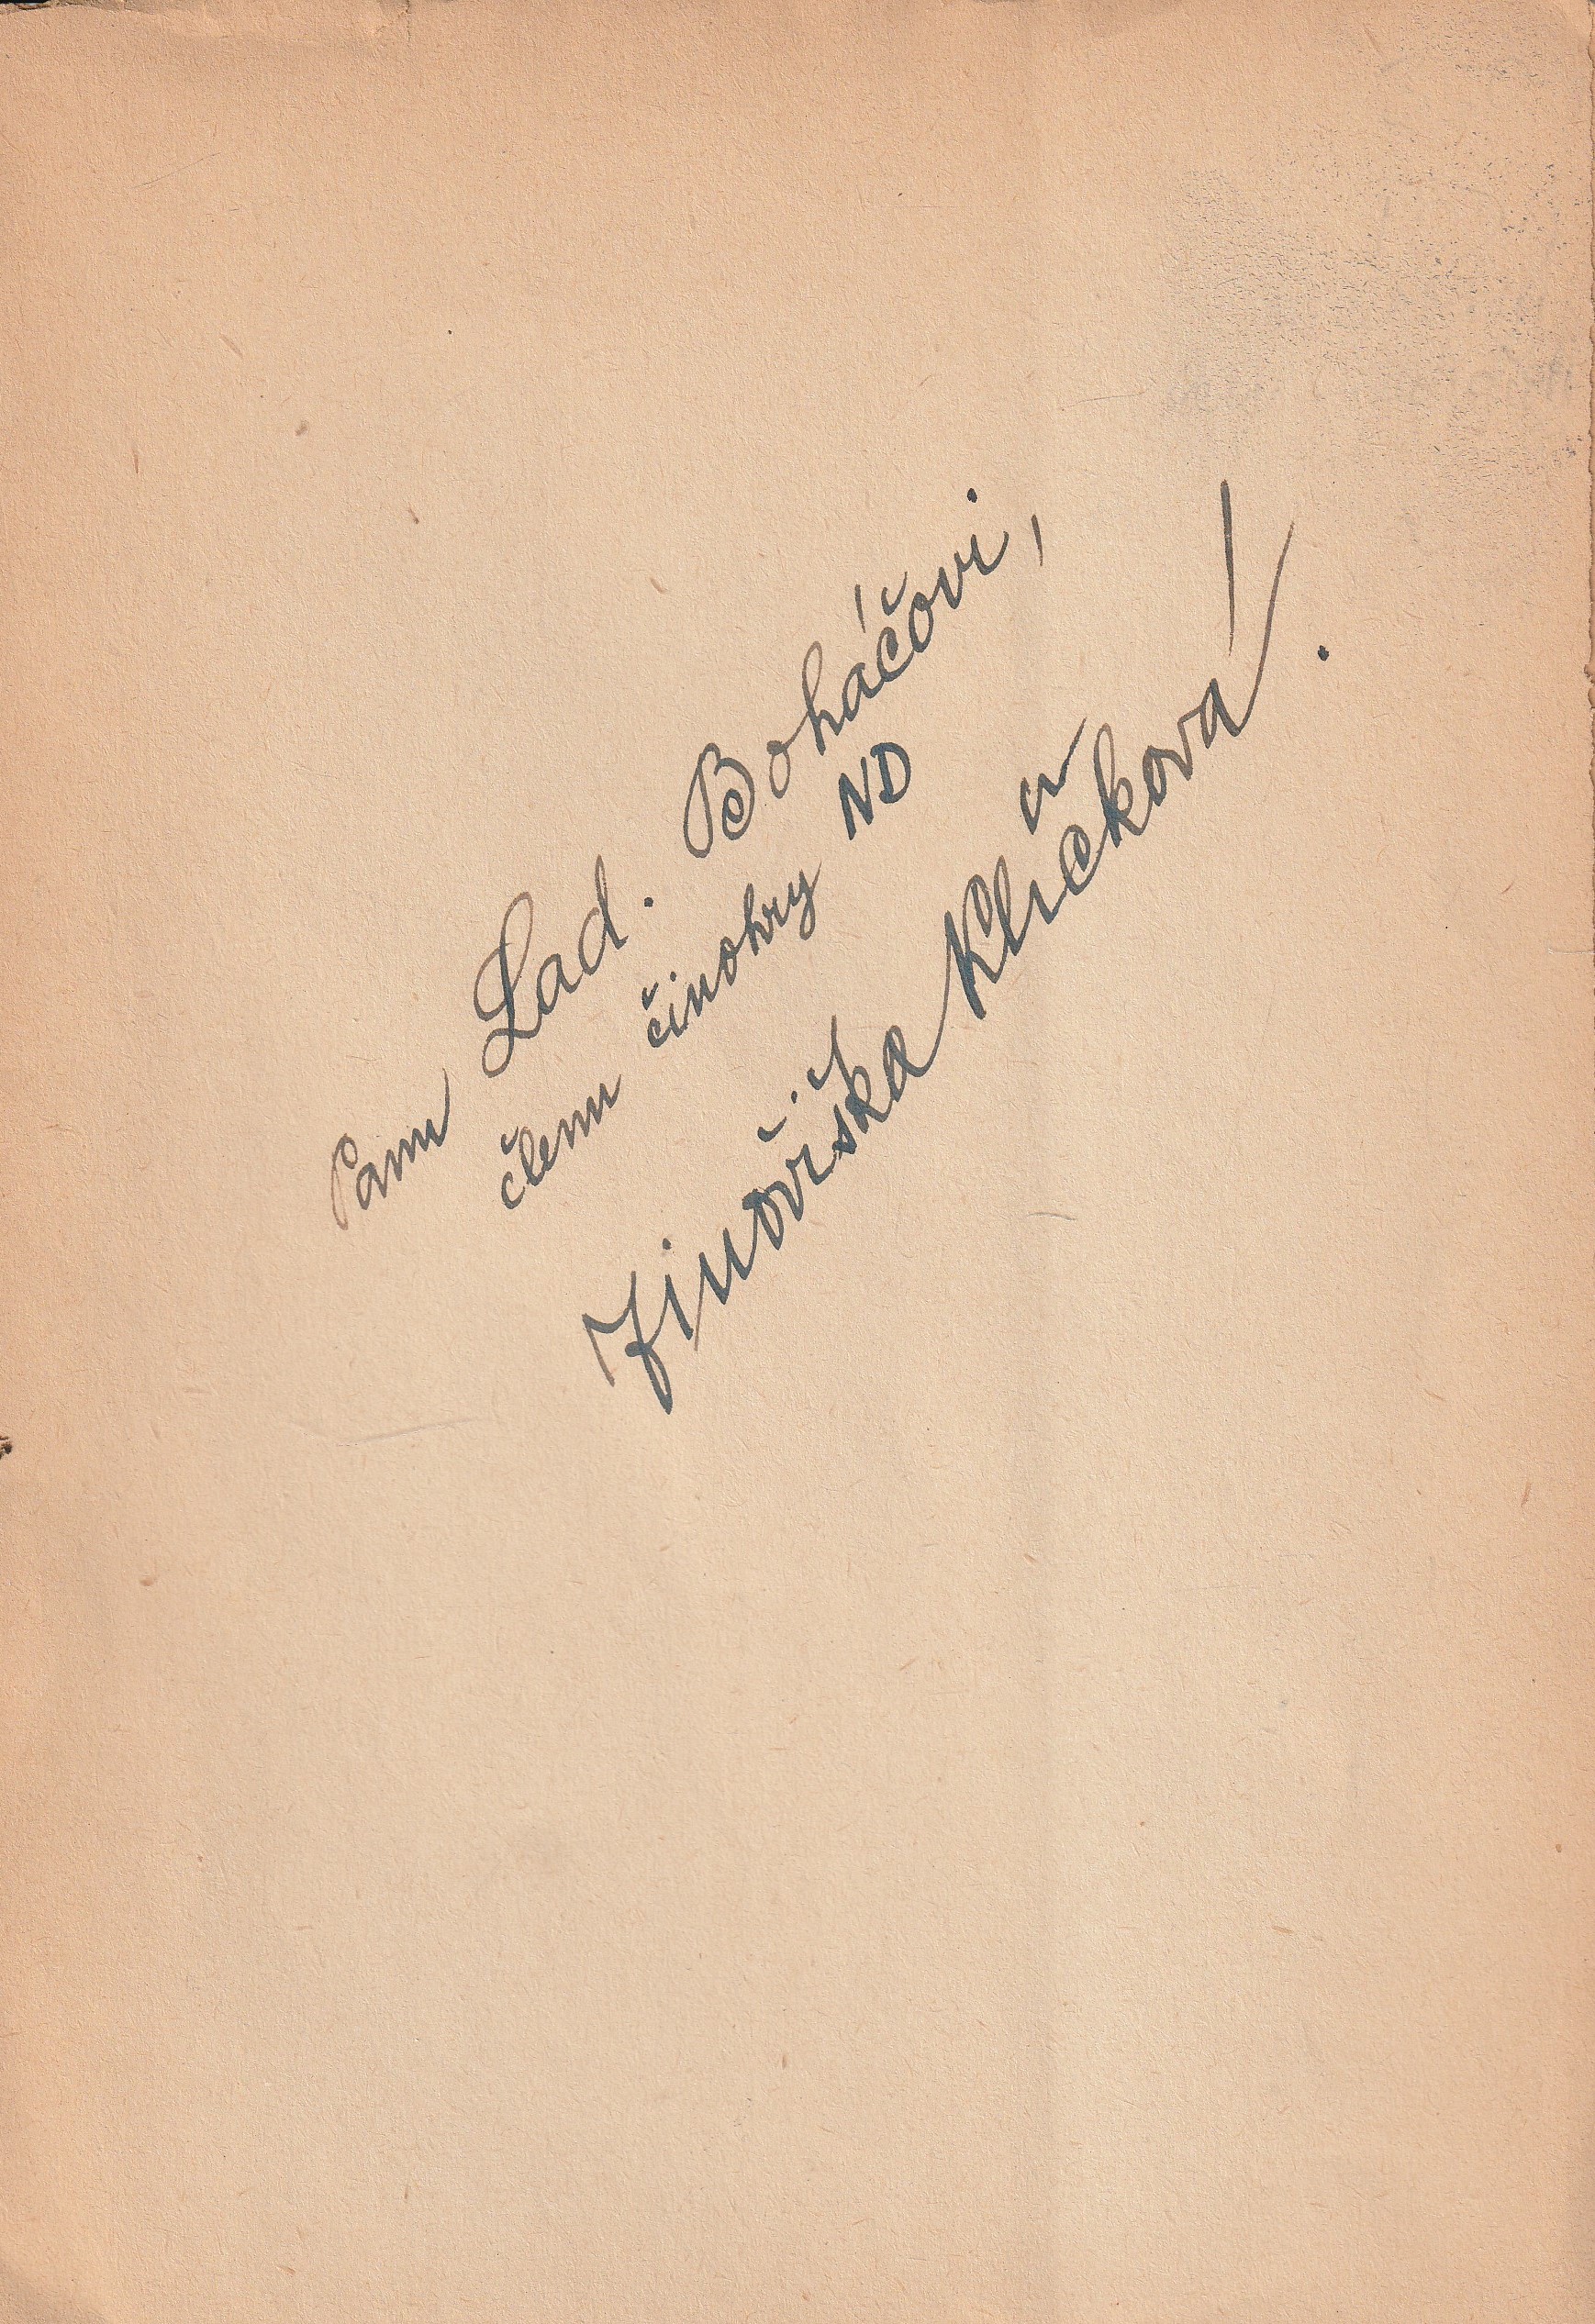 Panu Lad. Boháčovi,
členu činohry ND
Jinoviška Kličková.